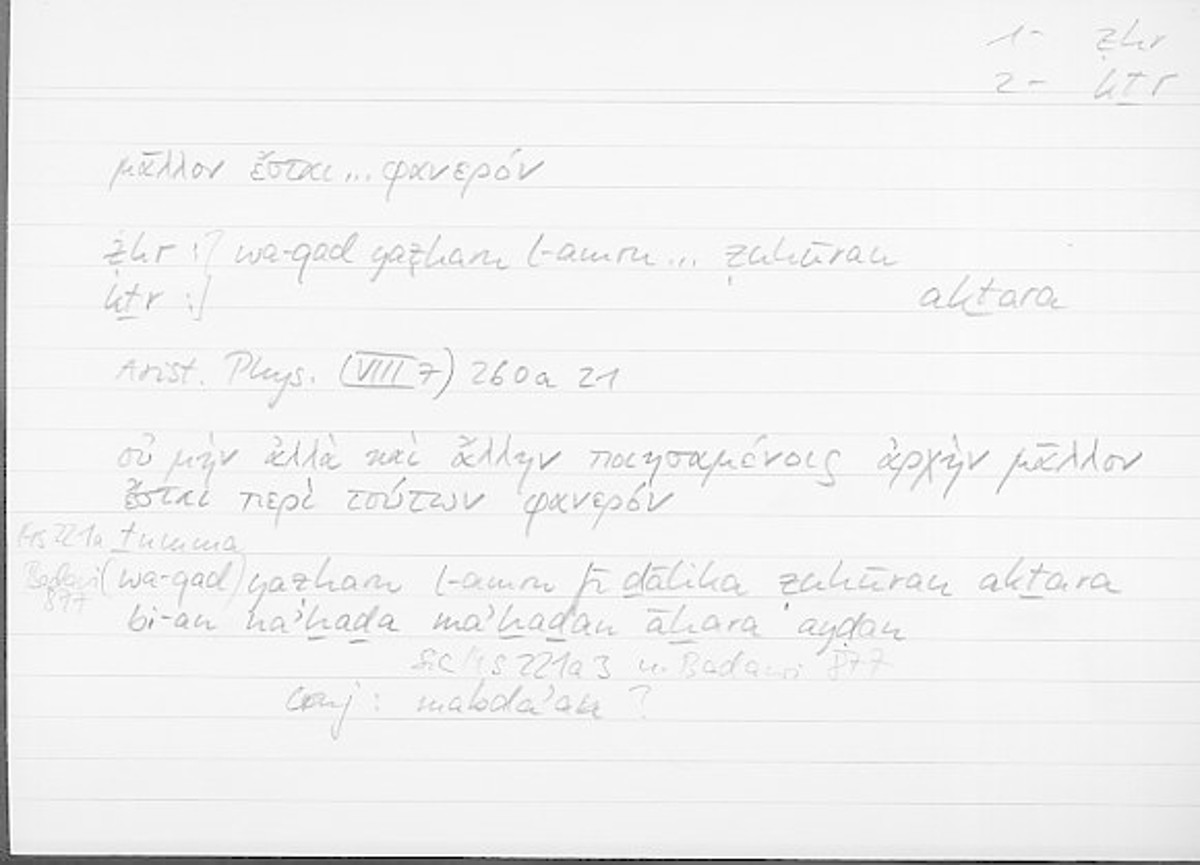 1- ẓhr
2- kṯr
μᾶλλον ἔσται... φανερόν
ẓhr :] wa-qad yaẓharu l-amru... ẓuhūran
kṯr :] akṯara
Arist. Phys. (VIII 7) 260a 21
οὐ μὴν ἀλλὰ καὶ ἄλλην ποιησαμένοις ἀρχὴν μᾶλλον
ἔσται περὶ τούτων φανερόν
Hs 221a ṯumma
Badawi 877 (wa-qad) yaẓharu l-amru fī ḏālika ẓuhūran akṯara
bi-an na'ḫuḏa ma'ḫaḏan āḫara ayḍan
sic Hs 221a3 u Badawi 877
conj: mabda'an ?